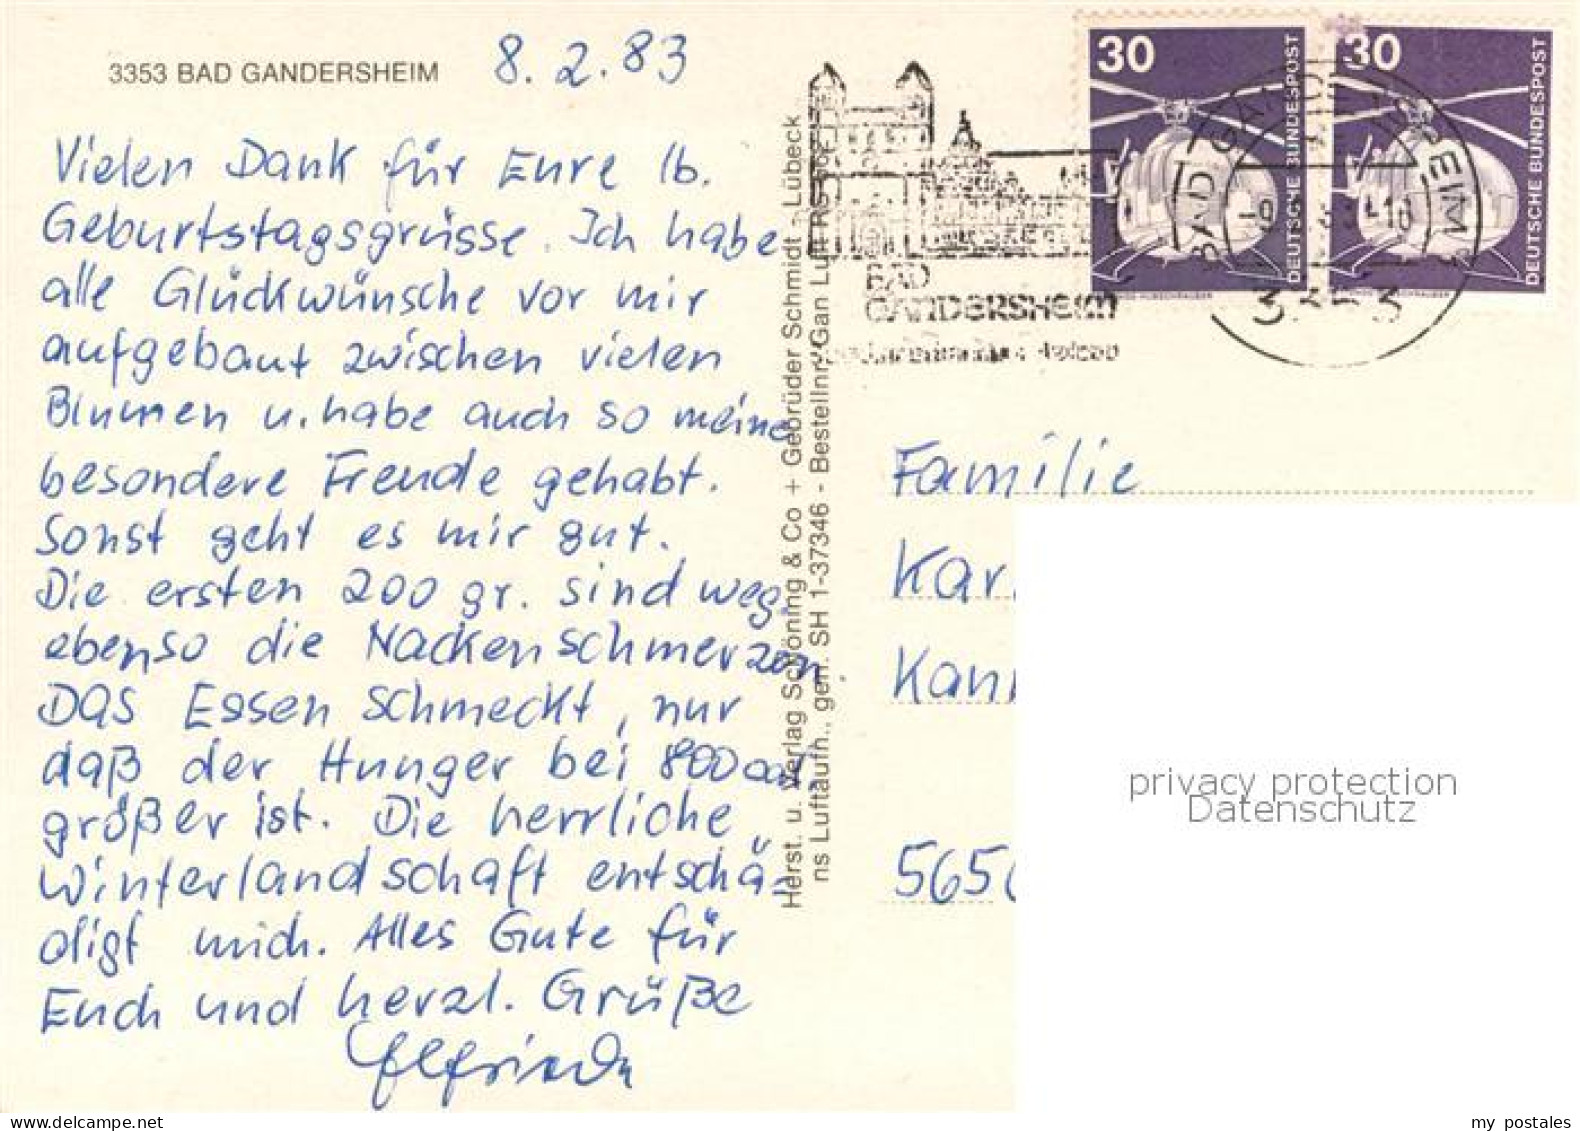 3353 BAD GANDERSHEIM
8.2.83
Vielen Dank für Eure lb.
Geburtstagsgrüsse. Ich habe
alle Glückwünsche vor mir
aufgebaut zwischen vielen
Blumen u. habe auch so meine
besondere Freude gehabt.
Sonst geht es mir gut.
Die ersten 200 gr. sind weg,
ebenso die Nackenschmerzen.
DAS Essen schmeckt, nur
daß der Hunger bei 800 cal.
größer ist. Die herrliche
Winterlandschaft entschä-
digt mich. Alles Gute für
Euch und herzl. Grüße
Elfriede
Herst. u. Verlag Schöning & Co + Gebrüder Schmidt - Lübeck
ns Luftaufn., gen. SH 1-37346 - Bestellnr. Gan Luft
30
DEUTSCHE BUNDESPOST
30
DEUTSCHE BUNDESPOST
BAD
GANDERSHEIM
BAD GANDERSHEIM
Familie
Kar
Kan
565
privacy protection
Datenschutz
my postales